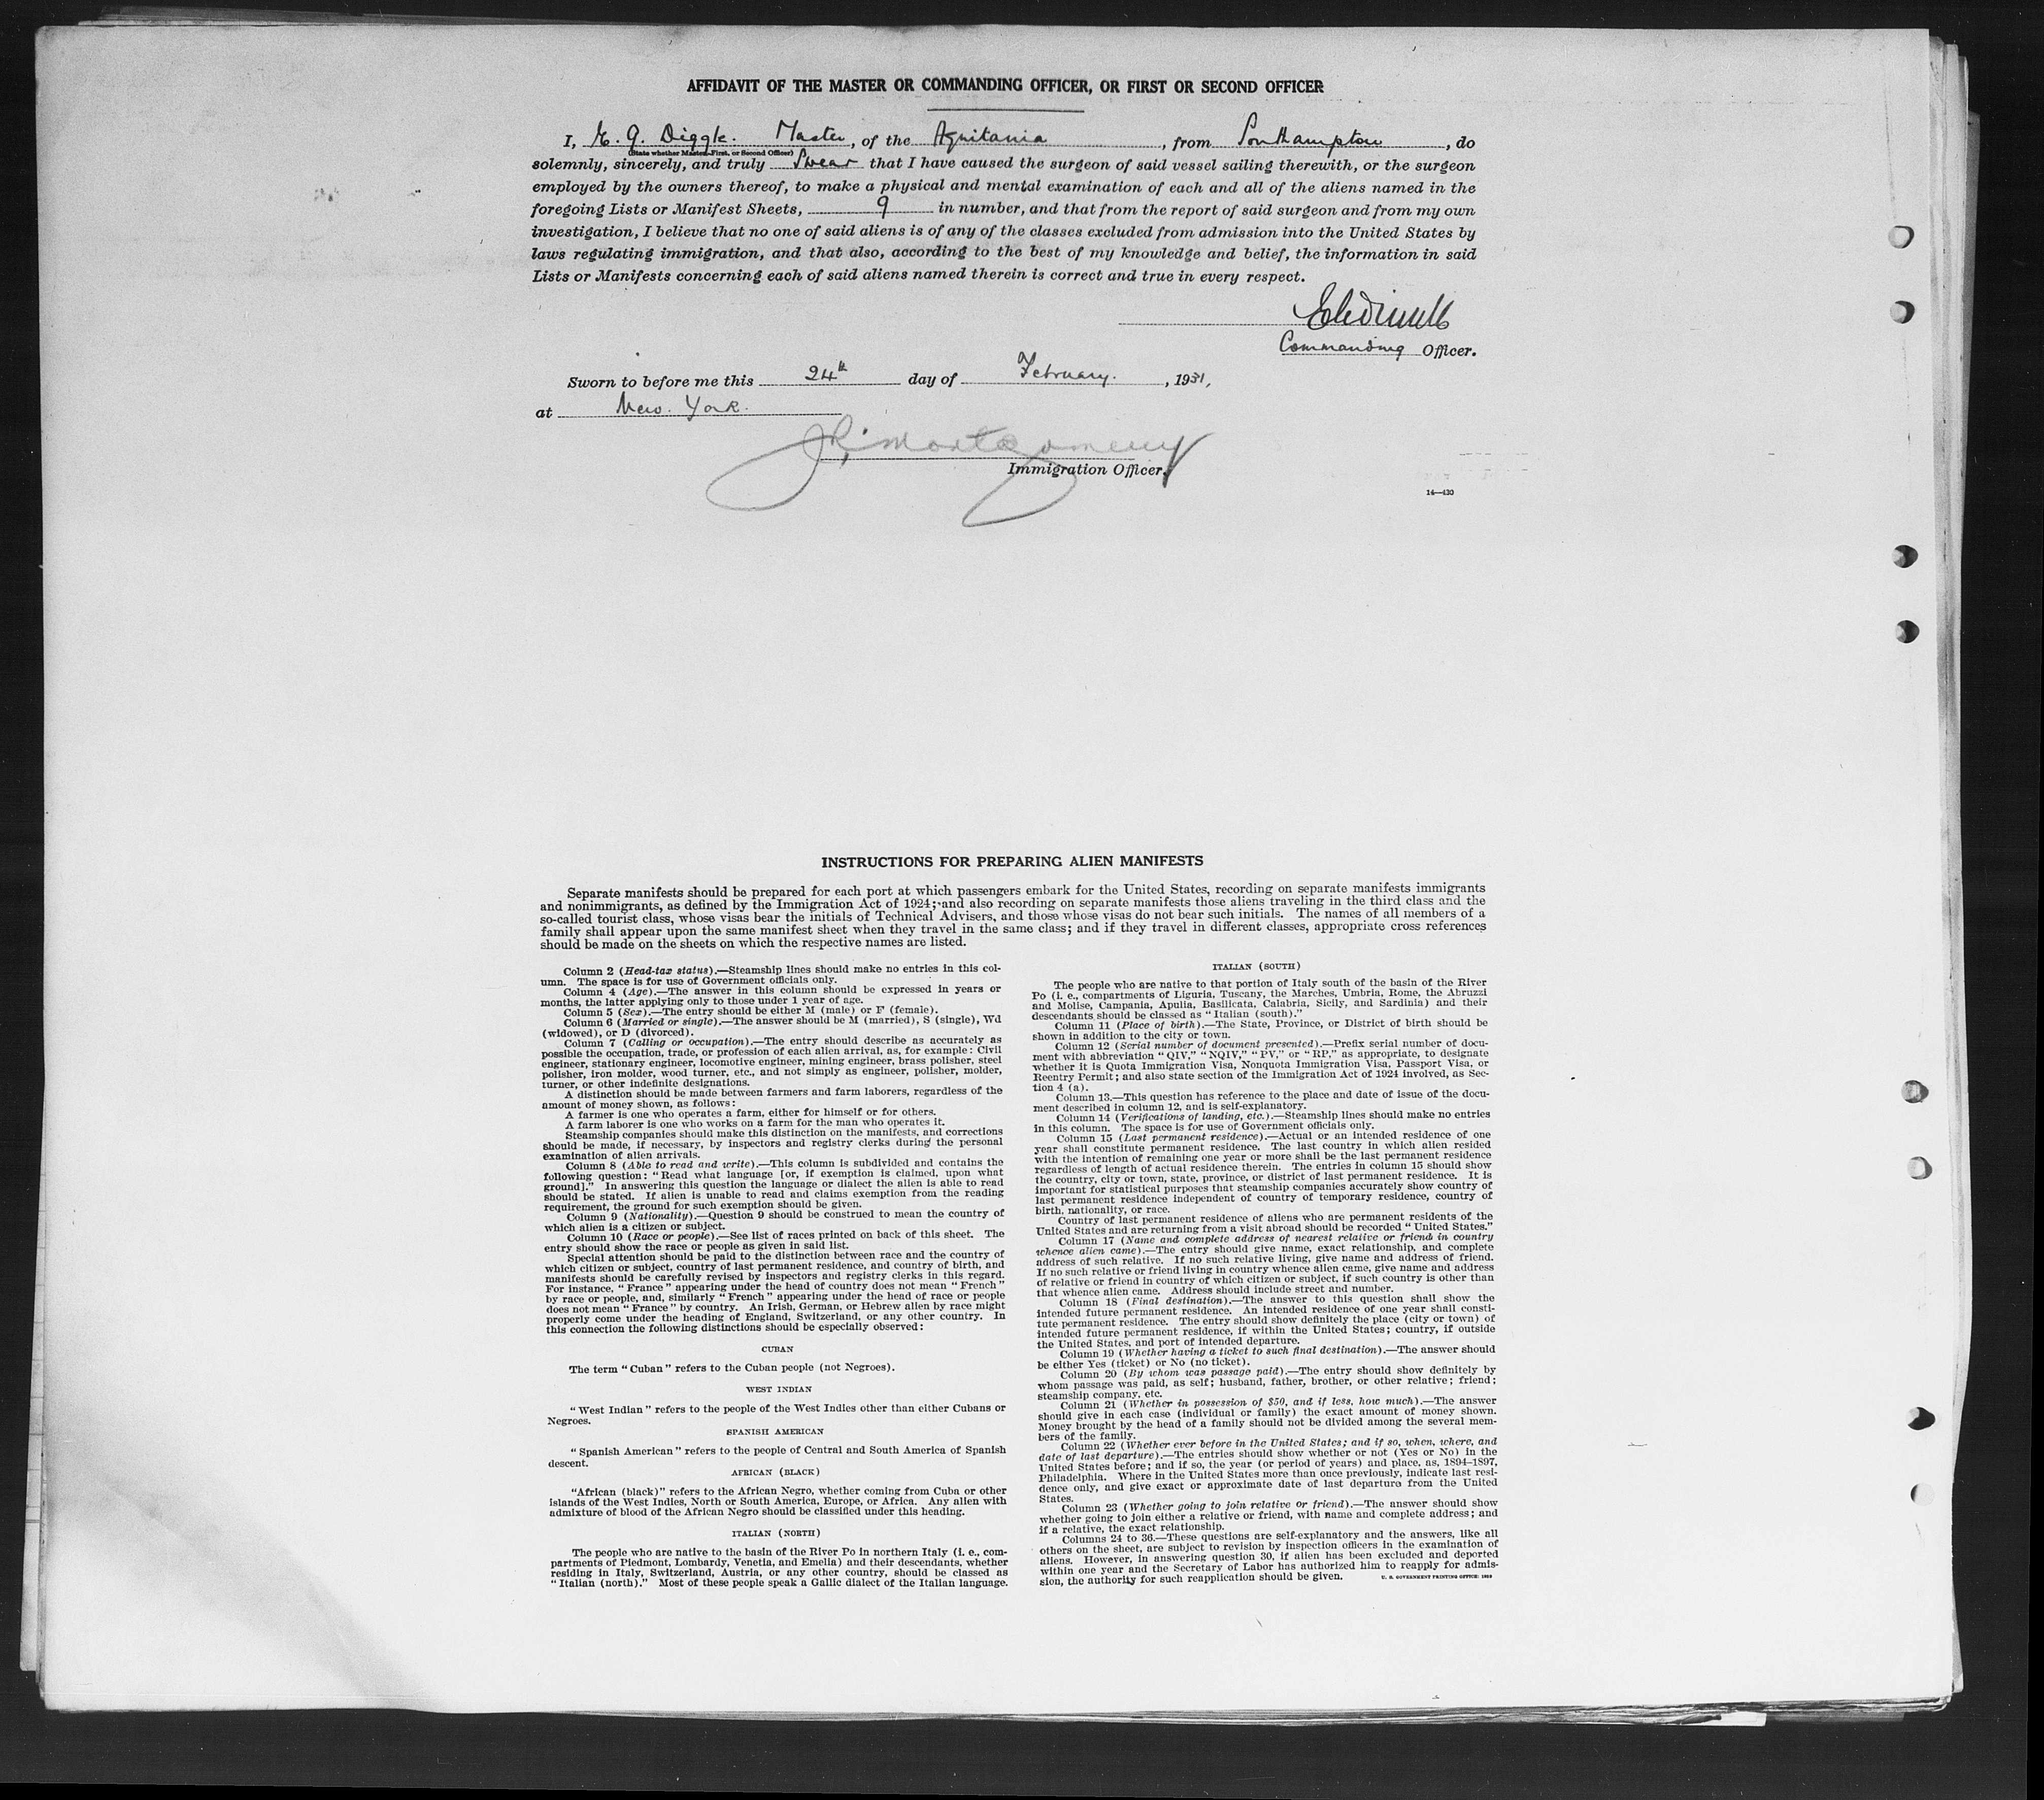 AFFIDAVIT OF THE MASTER OR COMMANDING OFFICER, OR FIRST OR SECOND OFFICER
I, E. G. Diggle. Master, of the Aquitania, from Southampton, do
(State whether Master, First, or Second Officer)
solemnly, sincerely, and truly Swear that I have caused the surgeon of said vessel sailing therewith, or the surgeon
employed by the owners thereof, to make a physical and mental examination of each and all of the aliens named in the
foregoing Lists or Manifest Sheets, 9 in number, and that from the report of said surgeon and from my own
investigation, I believe that no one of said aliens is of any of the classes excluded from admission into the United States by
laws regulating immigration, and that also, according to the best of my knowledge and belief, the information in said
Lists or Manifests concerning each of said aliens named therein is correct and true in every respect.
Commanding Officer.
Sworn to before me this 24th day of February., 1931,
at New. York.
J R Montgomery
Immigration Officer.
14—430
INSTRUCTIONS FOR PREPARING ALIEN MANIFESTS
Separate manifests should be prepared for each port at which passengers embark for the United States, recording on separate manifests immigrants
and nonimmigrants, as defined by the Immigration Act of 1924; and also recording on separate manifests those aliens traveling in the third class and the
so-called tourist class, whose visas bear the initials of Technical Advisers, and those whose visas do not bear such initials. The names of all members of a
family shall appear upon the same manifest sheet when they travel in the same class; and if they travel in different classes, appropriate cross references
should be made on the sheets on which the respective names are listed.
Column 2 (Head-tax status).—Steamship lines should make no entries in this col-
umn. The space is for use of Government officials only.
Column 4 (Age).—The answer in this column should be expressed in years or
months, the latter applying only to those under 1 year of age.
Column 5 (Sex).—The entry should be either M (male) or F (female).
Column 6 (Married or single).—The answer should be M (married), S (single), Wd
(widowed), or D (divorced).
Column 7 (Calling or occupation).—The entry should describe as accurately as
possible the occupation, trade, or profession of each alien arrival, as, for example: Civil
engineer, stationary engineer, locomotive engineer, mining engineer, brass polisher, steel
polisher, iron molder, wood turner, etc., and not simply as engineer, polisher, molder,
turner, or other indefinite designations.
A distinction should be made between farmers and farm laborers, regardless of the
amount of money shown, as follows:
A farmer is one who operates a farm, either for himself or for others.
A farm laborer is one who works on a farm for the man who operates it.
Steamship companies should make this distinction on the manifests, and corrections
should be made, if necessary, by inspectors and registry clerks during the personal
examination of alien arrivals.
Column 8 (Able to read and write).—This column is subdivided and contains the
following question: "Read what language [or, if exemption is claimed, upon what
ground]." In answering this question the language or dialect the alien is able to read
should be stated. If alien is unable to read and claims exemption from the reading
requirement, the ground for such exemption should be given.
Column 9 (Nationality).—Question 9 should be construed to mean the country of
which alien is a citizen or subject.
Column 10 (Race or people).—See list of races printed on back of this sheet. The
entry should show the race or people as given in said list.
Special attention should be paid to the distinction between race and the country of
which citizen or subject, country of last permanent residence, and country of birth, and
manifests should be carefully revised by inspectors and registry clerks in this regard.
For instance, "France" appearing under the head of country does not mean "French"
by race or people, and, similarly "French" appearing under the head of race or people
does not mean "France" by country. An Irish, German, or Hebrew alien by race might
properly come under the heading of England, Switzerland, or any other country. In
this connection the following distinctions should be especially observed:
CUBAN
The term "Cuban" refers to the Cuban people (not Negroes).
WEST INDIAN
"West Indian" refers to the people of the West Indies other than either Cubans or
Negroes.
SPANISH AMERICAN
"Spanish American" refers to the people of Central and South America of Spanish
descent.
AFRICAN (BLACK)
"African (black)" refers to the African Negro, whether coming from Cuba or other
islands of the West Indies, North or South America, Europe, or Africa. Any alien with
admixture of blood of the African Negro should be classified under this heading.
ITALIAN (NORTH)
The people who are native to the basin of the River Po in northern Italy (i. e., com-
partments of Piedmont, Lombardy, Venetia, and Emelia) and their descendants, whether
residing in Italy, Switzerland, Austria, or any other country, should be classed as
"Italian (north)." Most of these people speak a Gallic dialect of the Italian language.
ITALIAN (SOUTH)
The people who are native to that portion of Italy south of the basin of the River
Po (i. e., compartments of Liguria, Tuscany, the Marches, Umbria, Rome, the Abruzzi
and Molise, Campania, Apulia, Basilicata, Calabria, Sicily, and Sardinia) and their
descendants should be classed as "Italian (south)."
Column 11 (Place of birth).—The State, Province, or District of birth should be
shown in addition to the city or town.
Column 12 (Serial number of document presented).—Prefix serial number of docu-
ment with abbreviation "QIV," "NQIV," "PV," or "RP," as appropriate, to designate
whether it is Quota Immigration Visa, Nonquota Immigration Visa, Passport Visa, or
Reentry Permit; and also state section of the Immigration Act of 1924 involved, as Sec-
tion 4 (a).
Column 13.—This question has reference to the place and date of issue of the docu-
ment described in column 12, and is self-explanatory.
Column 14 (Verifications of landing, etc.).—Steamship lines should make no entries
in this column. The space is for use of Government officials only.
Column 15 (Last permanent residence).—Actual or an intended residence of one
year shall constitute permanent residence. The last country in which alien resided
with the intention of remaining one year or more shall be the last permanent residence
regardless of length of actual residence therein. The entries in column 15 should show
the country, city or town, state, province, or district of last permanent residence. It is
important for statistical purposes that steamship companies accurately show country of
last permanent residence independent of country of temporary residence, country of
birth, nationality, or race.
Country of last permanent residence of aliens who are permanent residents of the
United States and are returning from a visit abroad should be recorded "United States."
Column 17 (Name and complete address of nearest relative or friend in country
whence alien came).—The entry should give name, exact relationship, and complete
address of such relative. If no such relative living, give name and address of friend.
If no such relative or friend living in country whence alien came, give name and address
of relative or friend in country of which citizen or subject, if such country is other than
that whence alien came. Address should include street and number.
Column 18 (Final destination).—The answer to this question shall show the
intended future permanent residence. An intended residence of one year shall consti-
tute permanent residence. The entry should show definitely the place (city or town) of
intended future permanent residence, if within the United States; country, if outside
the United States, and port of intended departure.
Column 19 (Whether having a ticket to such final destination).—The answer should
be either Yes (ticket) or No (no ticket).
Column 20 (By whom was passage paid).—The entry should show definitely by
whom passage was paid, as self; husband, father, brother, or other relative; friend;
steamship company, etc.
Column 21 (Whether in possession of $50, and if less, how much).—The answer
should give in each case (individual or family) the exact amount of money shown.
Money brought by the head of a family should not be divided among the several mem-
bers of the family.
Column 22 (Whether ever before in the United States; and if so, when, where, and
date of last departure).—The entries should show whether or not (Yes or No) in the
United States before; and if so, the year (or period of years) and place, as, 1894–1897,
Philadelphia. Where in the United States more than once previously, indicate last resi-
dence only, and give exact or approximate date of last departure from the United
States.
Column 23 (Whether going to join relative or friend).—The answer should show
whether going to join either a relative or friend, with name and complete address; and
if a relative, the exact relationship.
Columns 24 to 36.—These questions are self-explanatory and the answers, like all
others on the sheet, are subject to revision by inspection officers in the examination of
aliens. However, in answering question 30, if alien has been excluded and deported
within one year and the Secretary of Labor has authorized him to reapply for admis-
sion, the authority for such reapplication should be given.
U. S. GOVERNMENT PRINTING OFFICE: